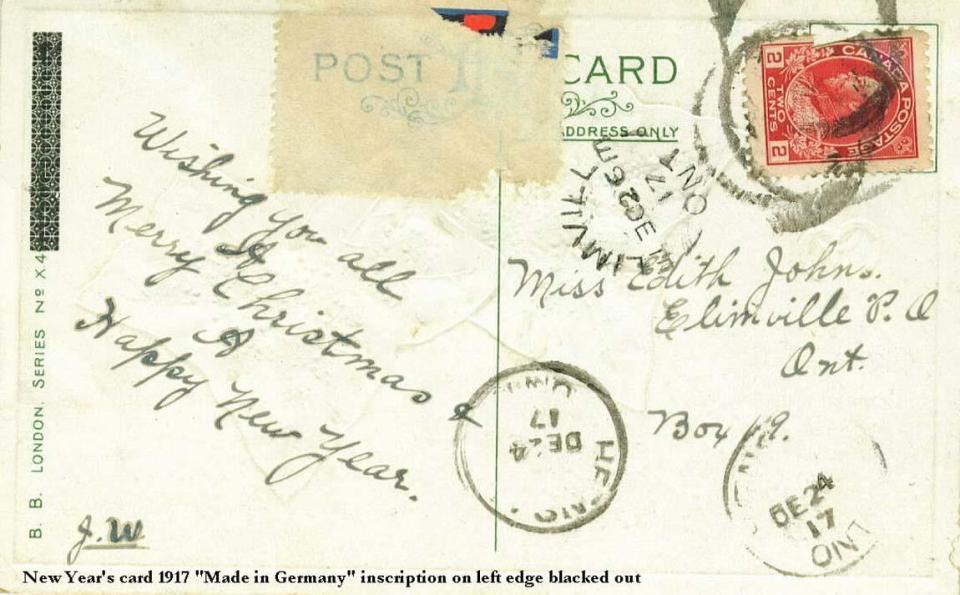 POST CARD
ADDRESS ONLY
CANADA POSTAGE
2 TWO CENTS 2
Wishing you all
A
Merry Christmas &
A
Happy New Year.
J.W
Miss Edith Johns.
Elimville P.O
Ont.
Box 49.
DE 26
17
ONT
DE 24
17
ONT
DE 24
17
ONT
B. B. LONDON. SERIES No X.4
New Year's card 1917 "Made in Germany" inscription on left edge blacked out